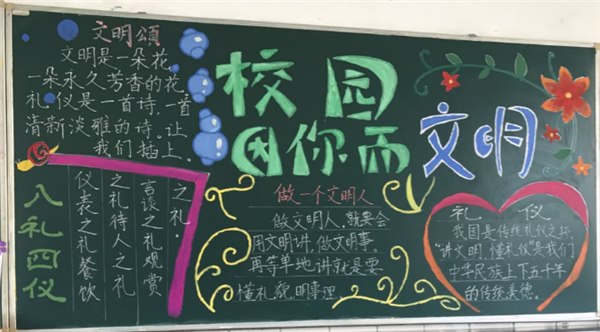 文明頌
文明是一朵花,
一朵永久芳香的花
礼仪是一首诗,一首
清新淡雅的诗。让
我们踏上。
校园
因你而
文明
八礼四仪
仪表之礼餐饮
之礼待人之礼
言谈之礼观赏
之礼。
做一个文明人
做文明人,就要会
用文明讲,做文明事。
再等单地讲就是要
懂礼貌,明事理
礼仪
我国是传统礼仪之邦
"讲文明,懂礼仪"是我们
中华民族上下五千年
的传统美德。